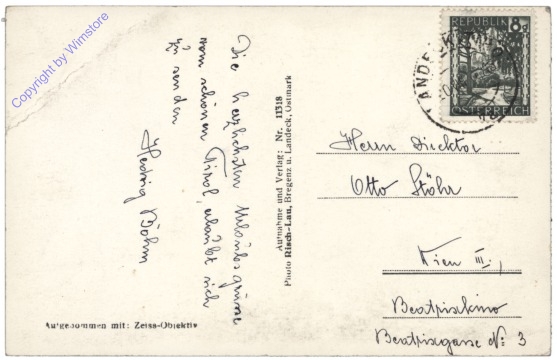 Copyright by Wimstore
Die herzlichsten Urlaubsgrüsse
vom schönen Tirol, erlaubt sich
zu senden
Hedwig Böhm
Aufnahme und Verlag: Nr. 11318
Photo Risch-Lau, Bregenz u. Landeck, Ostmark
Aufgenommen mit: Zeiss-Objektiv
REPUBLIK 8g
ÖSTERREICH
LANDECK
Herrn Direktor
Otto Stöhr
Wien III.,
Beatrixkino
Beatrixgasse No 3